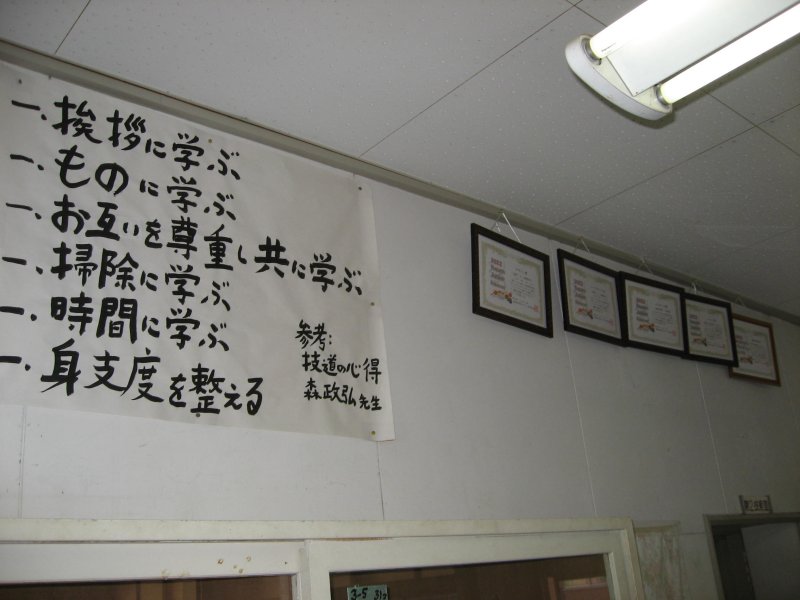 一、挨拶に学ぶ
一、ものに学ぶ
一、お互いを尊重し共に学ぶ
一、掃除に学ぶ
一、時間に学ぶ
一、身支度を整える
参考:
技道の心得
森政弘先生
3-5